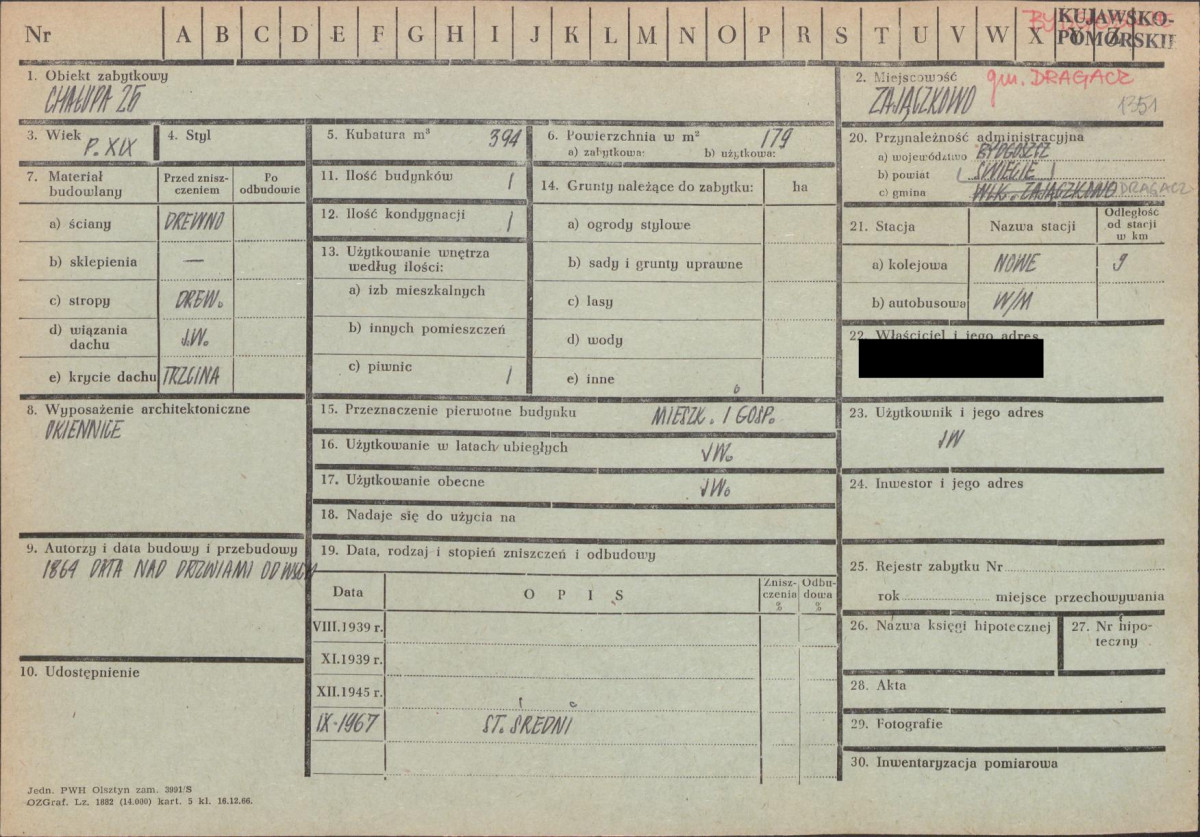 Nr A B C D E F G H I J K L M N O P R S T U V W X Y Z
KUJAWSKO-
POMORSKIE
1. Obiekt zabytkowy
CHAŁUPA 26
2. Miejscowość gm. DRAGACZ
ZAJĄCZKOWO 1351
3. Wiek
P. XIX
4. Styl
5. Kubatura m³ 394
6. Powierzchnia w m² 179
a) zabytkowa: b) użytkowa:
7. Materiał budowlany
Przed zniszczeniem
Po odbudowie
a) ściany DREWNO
b) sklepienia —
c) stropy DREW.
d) wiązania dachu J.W.
e) krycie dachu TRZCINA
8. Wyposażenie architektoniczne
OKIENNICE
9. Autorzy i data budowy i przebudowy
1864 DATA NAD DRZWIAMI OD WSCH
10. Udostępnienie
11. Ilość budynków 1
12. Ilość kondygnacji 1
13. Użytkowanie wnętrza
według ilości:
a) izb mieszkalnych
b) innych pomieszczeń
c) piwnic 1
14. Grunty należące do zabytku: ha
a) ogrody stylowe
b) sady i grunty uprawne
c) lasy
d) wody
e) inne
15. Przeznaczenie pierwotne budynku MIESZK. I GOSP.
16. Użytkowanie w latach ubiegłych JW.
17. Użytkowanie obecne JW.
18. Nadaje się do użycia na
19. Data, rodzaj i stopień zniszczeń i odbudowy
Data OPIS Zniszczenia % Odbudowa %
VIII.1939 r.
XI.1939 r.
XII.1945 r.
IX-1967 ST. ŚREDNI
20. Przynależność administracyjna
a) województwo BYDGOSZCZ
b) powiat ŚWIECIE
c) gmina WLK. ZAJĄCZKOWO DRAGACZ
21. Stacja Nazwa stacji Odległość od stacji w km
a) kolejowa NOWE 9
b) autobusowa W/M
22. Właściciel i jego adres
23. Użytkownik i jego adres
JW
24. Inwestor i jego adres
25. Rejestr zabytku Nr
rok miejsce przechowywania
26. Nazwa księgi hipotecznej
27. Nr hipoteczny
28. Akta
29. Fotografie
30. Inwentaryzacja pomiarowa
Jedn. PWH Olsztyn zam. 3991/S
OZGraf. Lz. 1882 (14.000) kart. 5 kl. 16.12.66.